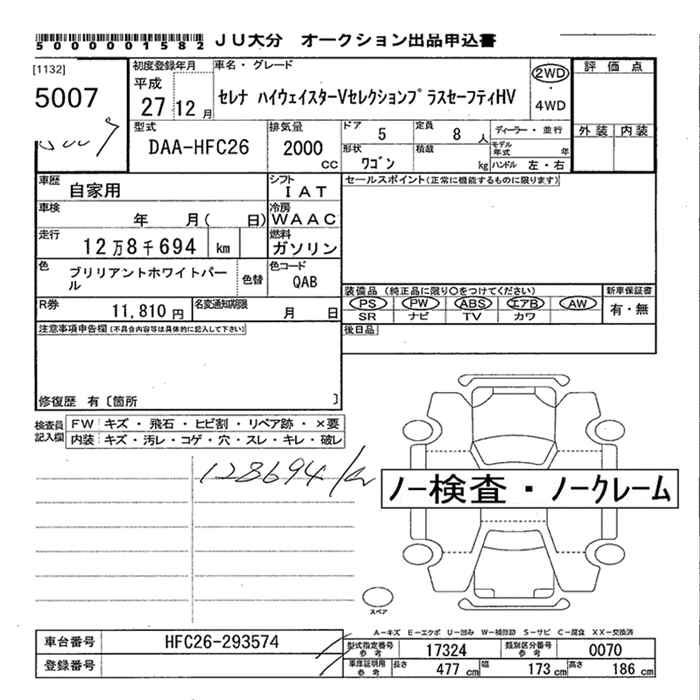 5000001582 JU大分 オークション出品申込書
[1132]
5007
初度登録年月
平成
27 12 月
車名・グレード
セレナ ハイウェイスターVセレクションプラスセーフティHV
2WD
・
4WD
評価点
外装 内装
型式
DAA-HFC26
排気量
2000
cc
ドア 5
定員 8 人
ディーラー・並行
モデル年式 年
形状 ワゴン
積載 kg
ハンドル 左・右
車歴 自家用
シフト IAT
車検 年 月( 日)
冷房 WAAC
走行 12万8千694 km
燃料 ガソリン
色 ブリリアントホワイトパール
色替
色コード QAB
R券 11,810 円
名変通知期限 月 日
セールスポイント(正常に機能するものに限ります)
装備品 (純正品に限り○をつけてください)
PS PW ABS エアB AW
SR ナビ TV カワ
新車保証書
有・無
後日品
注意事項申告欄(不具合内容等は具体的に記入して下さい)
修復歴 有〔箇所 〕
検査員記入欄
FW キズ・飛石・ヒビ割・リペア跡・×要
内装 キズ・汚レ・コゲ・穴・スレ・キレ・破レ
128694 km
ノー検査・ノークレーム
スペア
A-キズ E-エクボ U-凹み W-補修跡 S-サビ C-腐食 XX-交換済
車台番号 HFC26-293574
登録番号
型式指定番号 参考 17324
類別区分番号 参考 0070
車庫証明用 参考 長さ 477 cm 幅 173 cm 高さ 186 cm